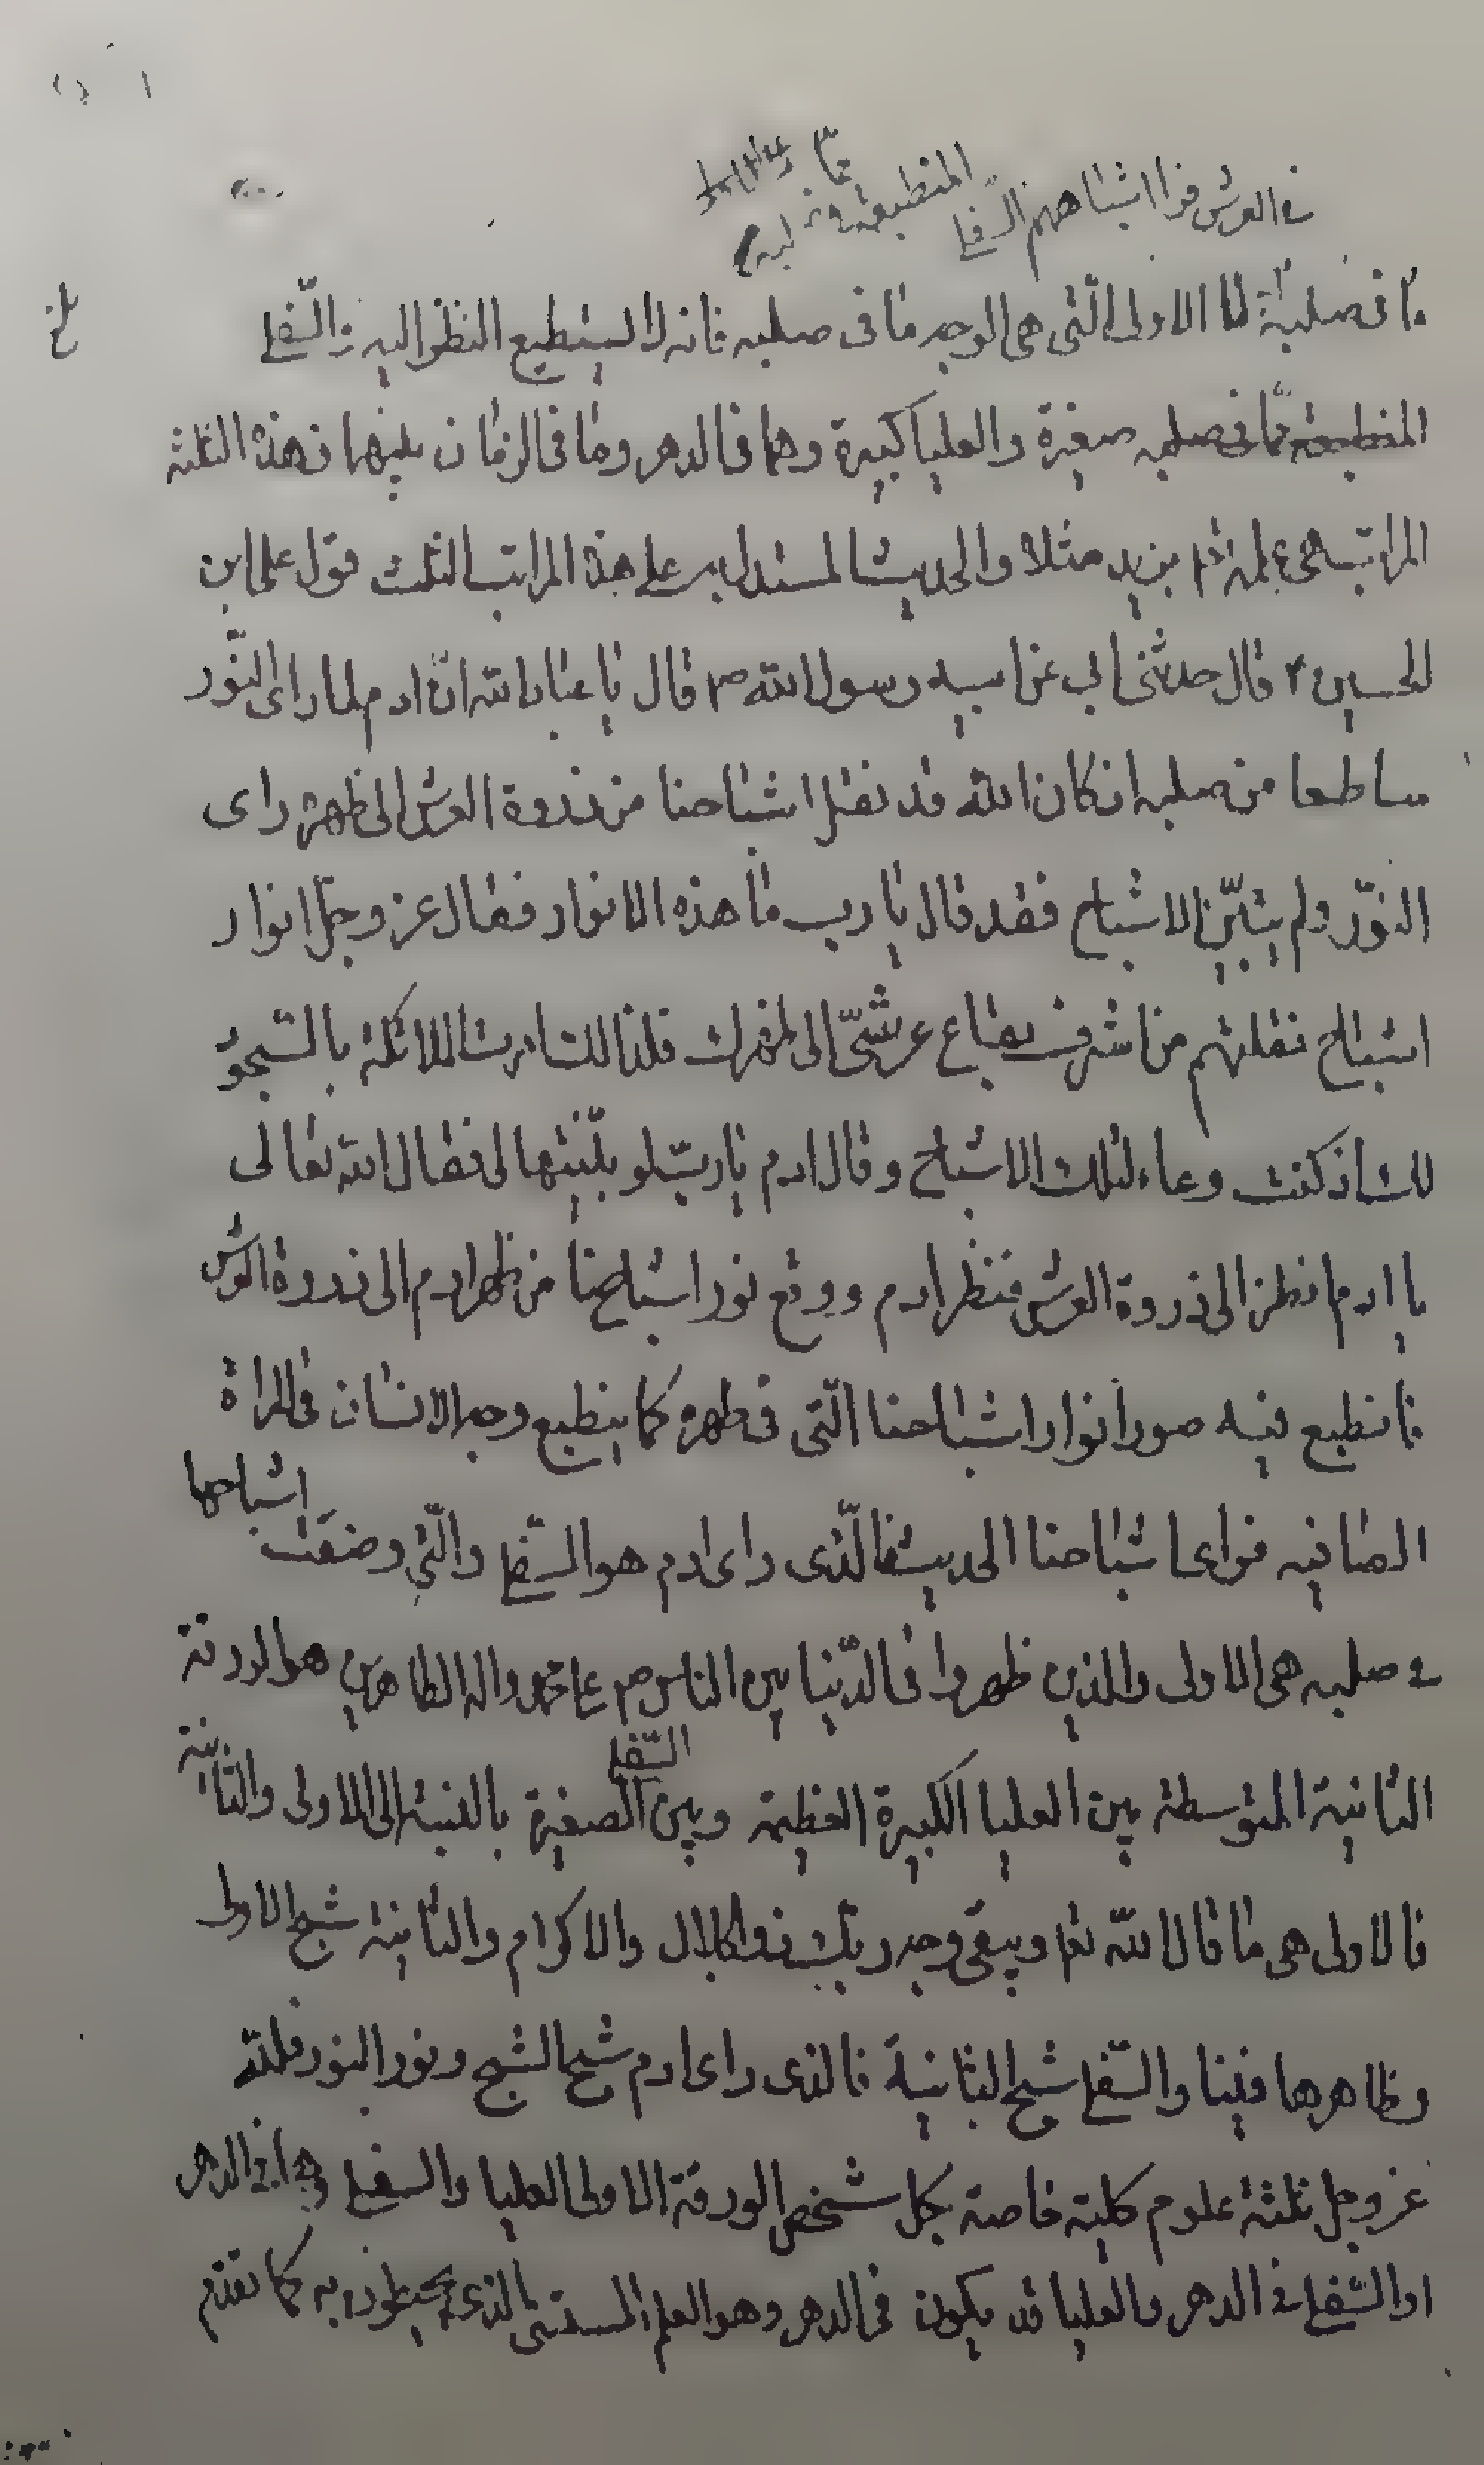 في العرش فرا اشباههم السفلى
المنطبعة فيه مما
ما في صلبه لها الاولى التي هي الوجه ما في صلبه فانه لا يستطيع النظر اليه والسفلى
المنطبعة مما في صلبه صغيرة والعليا كبيرة وهما في الدهر وما في الزمان بينهما فهذه الثلثة
المراتب هي علمه بزيد مثلا والحديث المستدل به على هذه المراتب الثلث قول علي ابن
الحسين ع قال حدثني ابي عن ابيه رسول الله ص قال يا عباد الله ان ادم لما راى النور
ساطعا من صلبه اذ كان الله قد نقل اشباحنا من ذروة العرش الى ظهره راى
النور ولم يتبين الاشباح فقد قال يا رب ما هذه الانوار فقال عز وجل انوار
اشباح نقلتهم من اشرف بقاع عرشي الى ظهرك فلذلك امرت الملائكة بالسجود
لك اذ كنت وعاء لتلك الاشباح وقال ادم يا رب لو بينتها لي فقال الله تعالى
يا ادم انظر الى ذروة العرش فنظر ادم ووقع نور اشباحنا من ظهر ادم الى ذروة العرش
فانطبع فيه صور انوار اشباحنا التي في ظهره كما ينطبع وجه الانسان في المراة
الصافيه فراى اشباحنا الحديث فالذى راى ادم هو السفلى والتي وضعت اشباحها
في صلبه هي الاولى والذين ظهروا في الدنيا بين الناس ص على محمد واله الطاهرين هو الورقة
الثانية المتوسطة بين العليا الكبيرة العظيمة وبين السفلى الصغيرة بالنسبة الى الاولى والثانية
فالاولى هي ما قال الله تعا ويبقى وجه ربك ذو الجلال والاكرام والثانية شبح الاولى
وظاهرها فينا والسفلى شبح الثانية فالذى راى ادم شبح الشبح ونور النور فلله
عز وجل ثلثة علوم كلية خاصة بكل شخص الورقة الاولى العليا والسفلى وهما في الدهر
او السفلى في الدهر والعليا قد يكون في الدهر وهو العلم المستثنى الذى يحيطون به كما تقدم